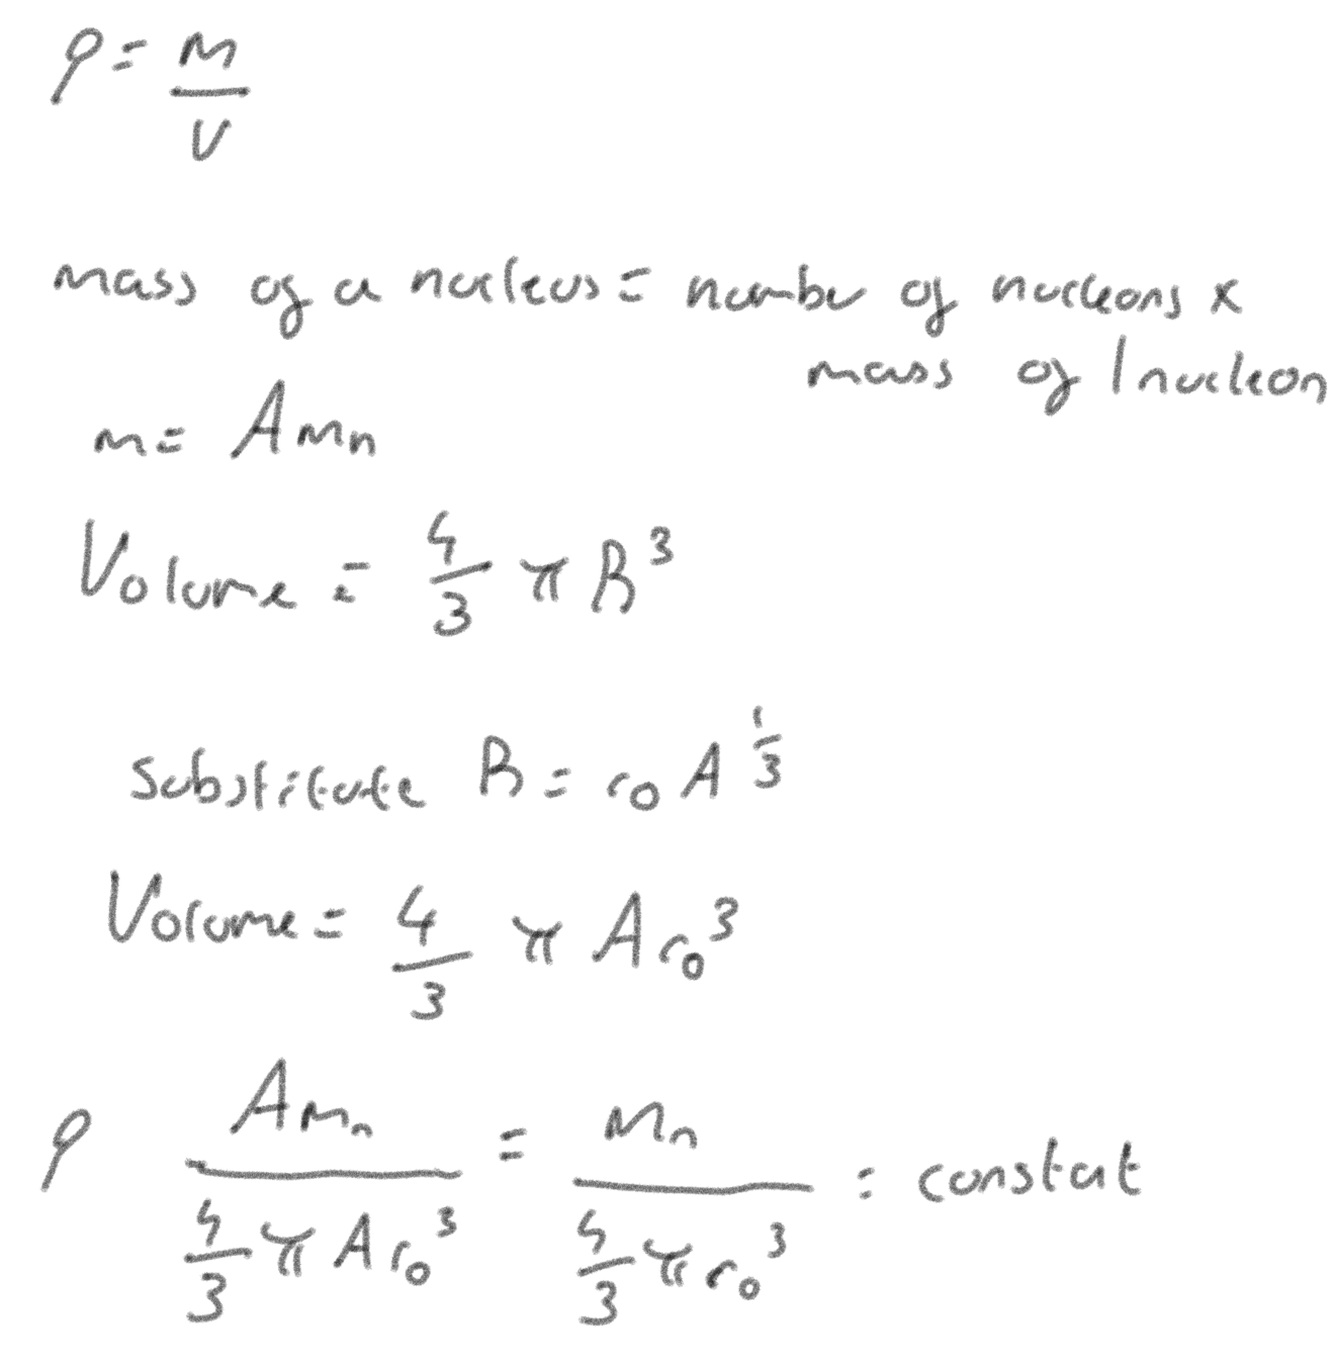 ρ = m/V
mass of a nucleus = number of nucleons x
mass of 1 nucleon
m = Amₙ
Volume = 4/3 π R³
substitute R = r₀ A^(1/3)
Volume = 4/3 π A r₀³
ρ Amₙ / (4/3 π A r₀³) = mₙ / (4/3 π r₀³) = constat